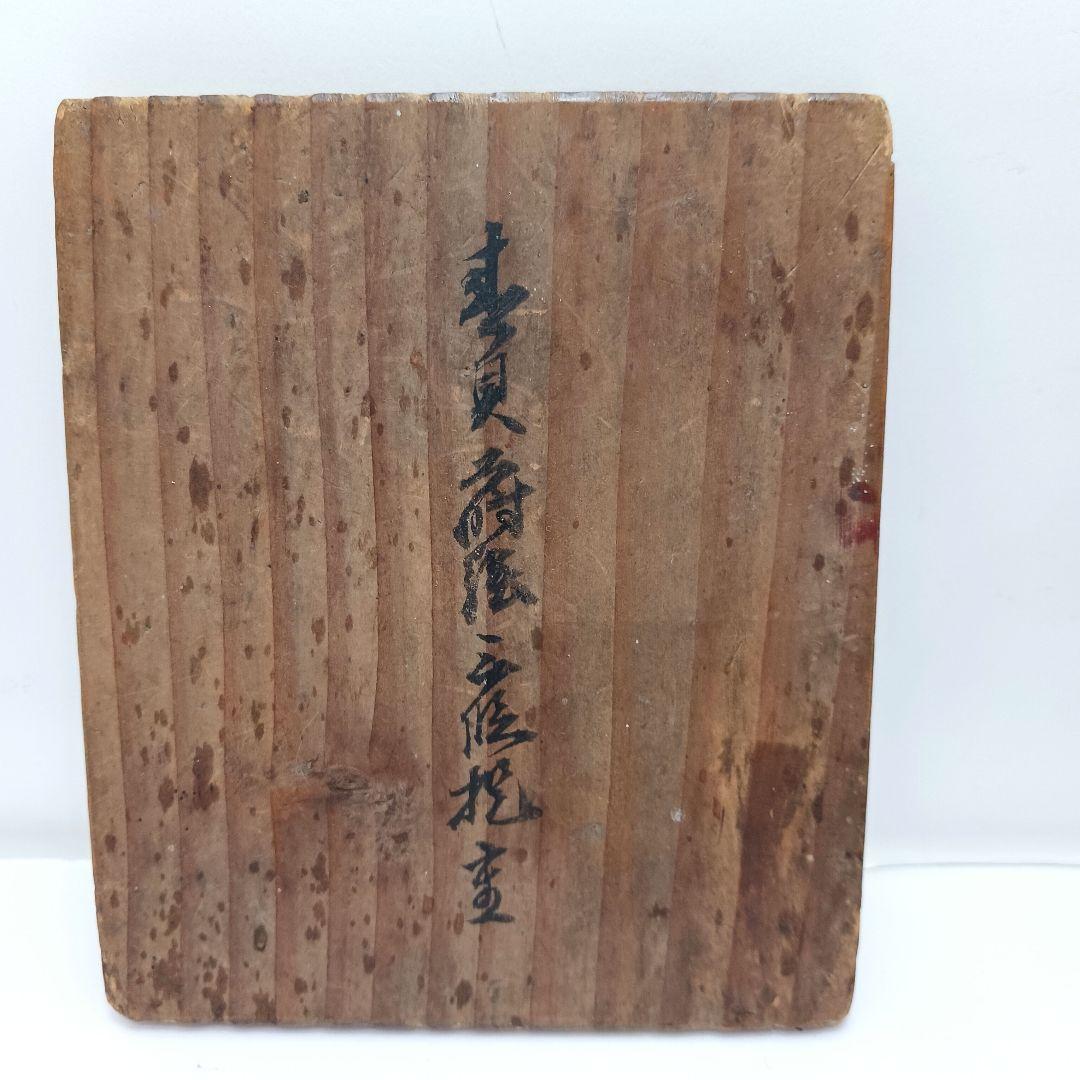 青貝蒔絵三段提重